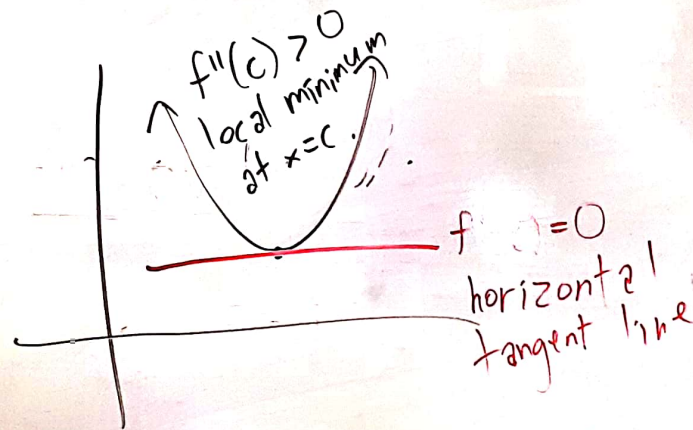 f''(c) > 0
local minimum
at x=c.
f = 0
horizontal
tangent line